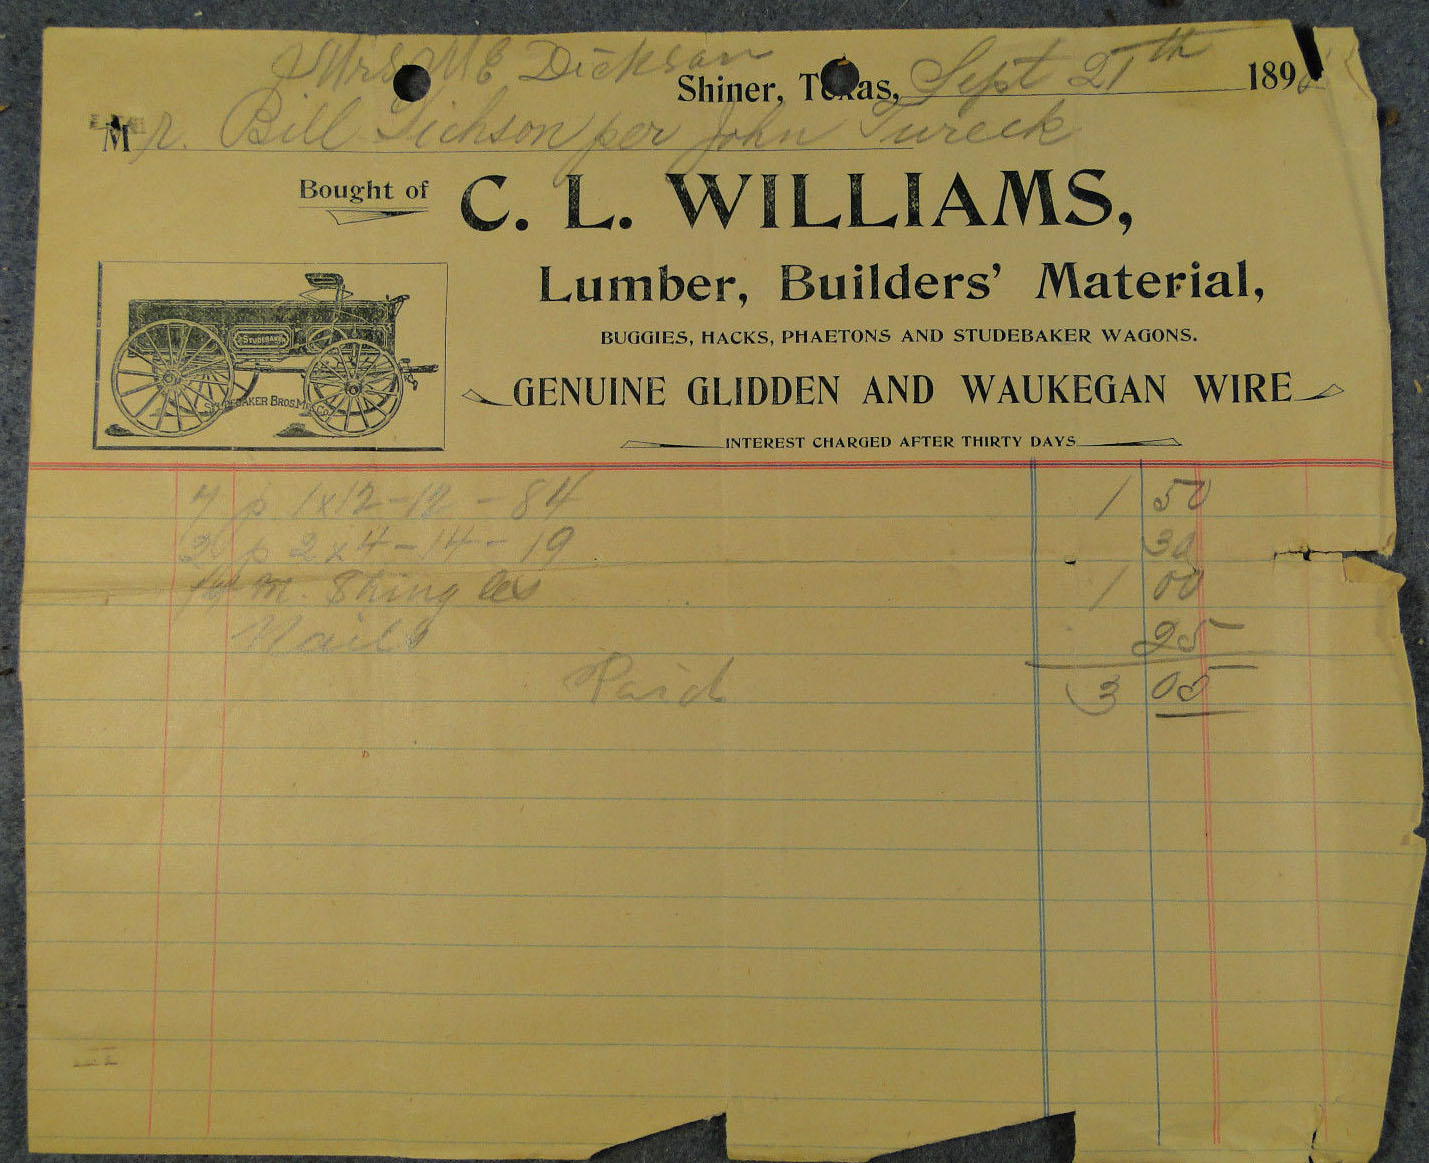 Mrs M E Dickson
Shiner, Texas, Sept 21th 189
Mr. Bill Dickson per John Tureck
Bought of C. L. WILLIAMS,
Lumber, Builders' Material,
BUGGIES, HACKS, PHAETONS AND STUDEBAKER WAGONS.
GENUINE GLIDDEN AND WAUKEGAN WIRE
INTEREST CHARGED AFTER THIRTY DAYS
STUDEBAKER
STUDEBAKER BROS. MFG. CO.
7 p 1x12-12-84 1 50
2 p 2x4-14-19 30
M. Shingles 1 00
Nails 25
Paid 3 05